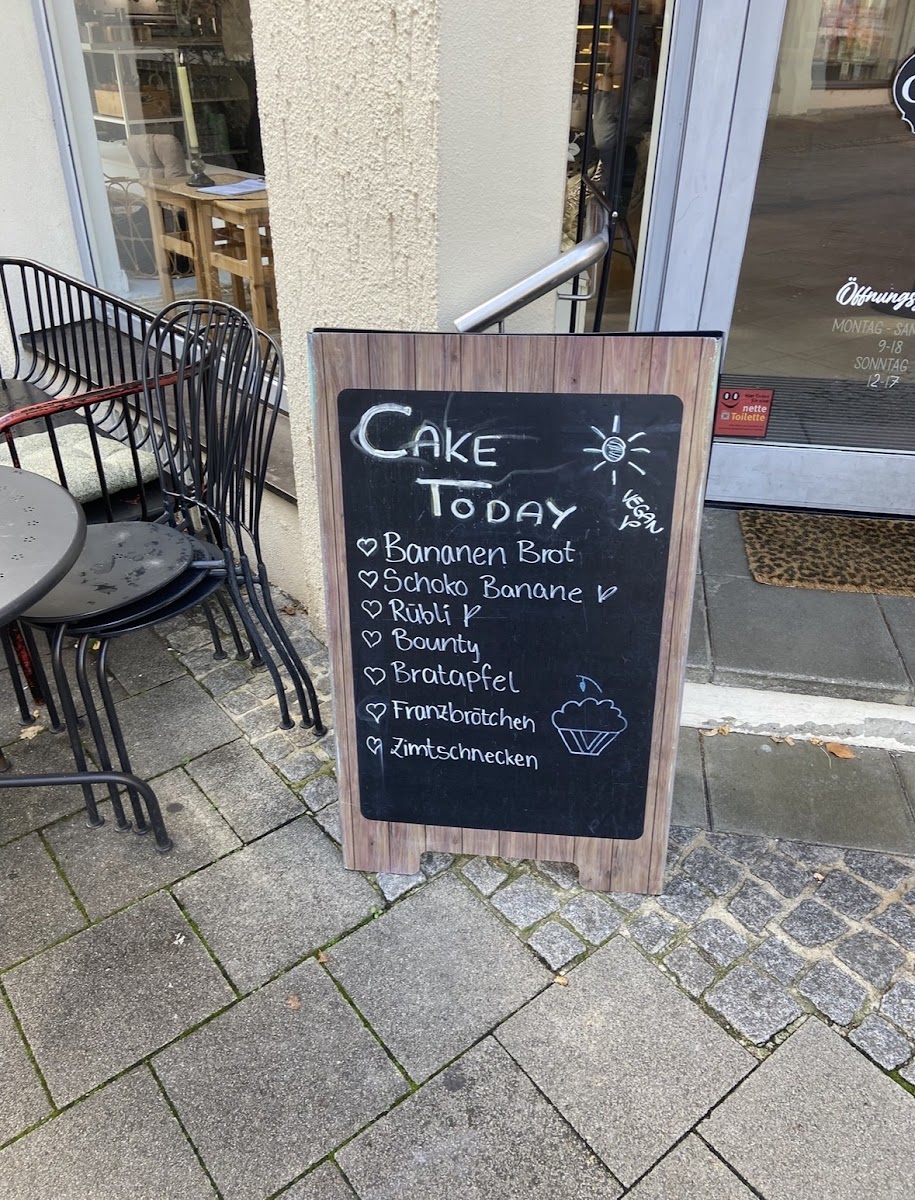 CAKE
TODAY
VEGAN
Bananen Brot
Schoko Banane
Rübli
Bounty
Bratapfel
Franzbrötchen
Zimtschnecken
Öffnungs
MONTAG - SA
9-18
SONNTAG
12-17
nette
Toilette